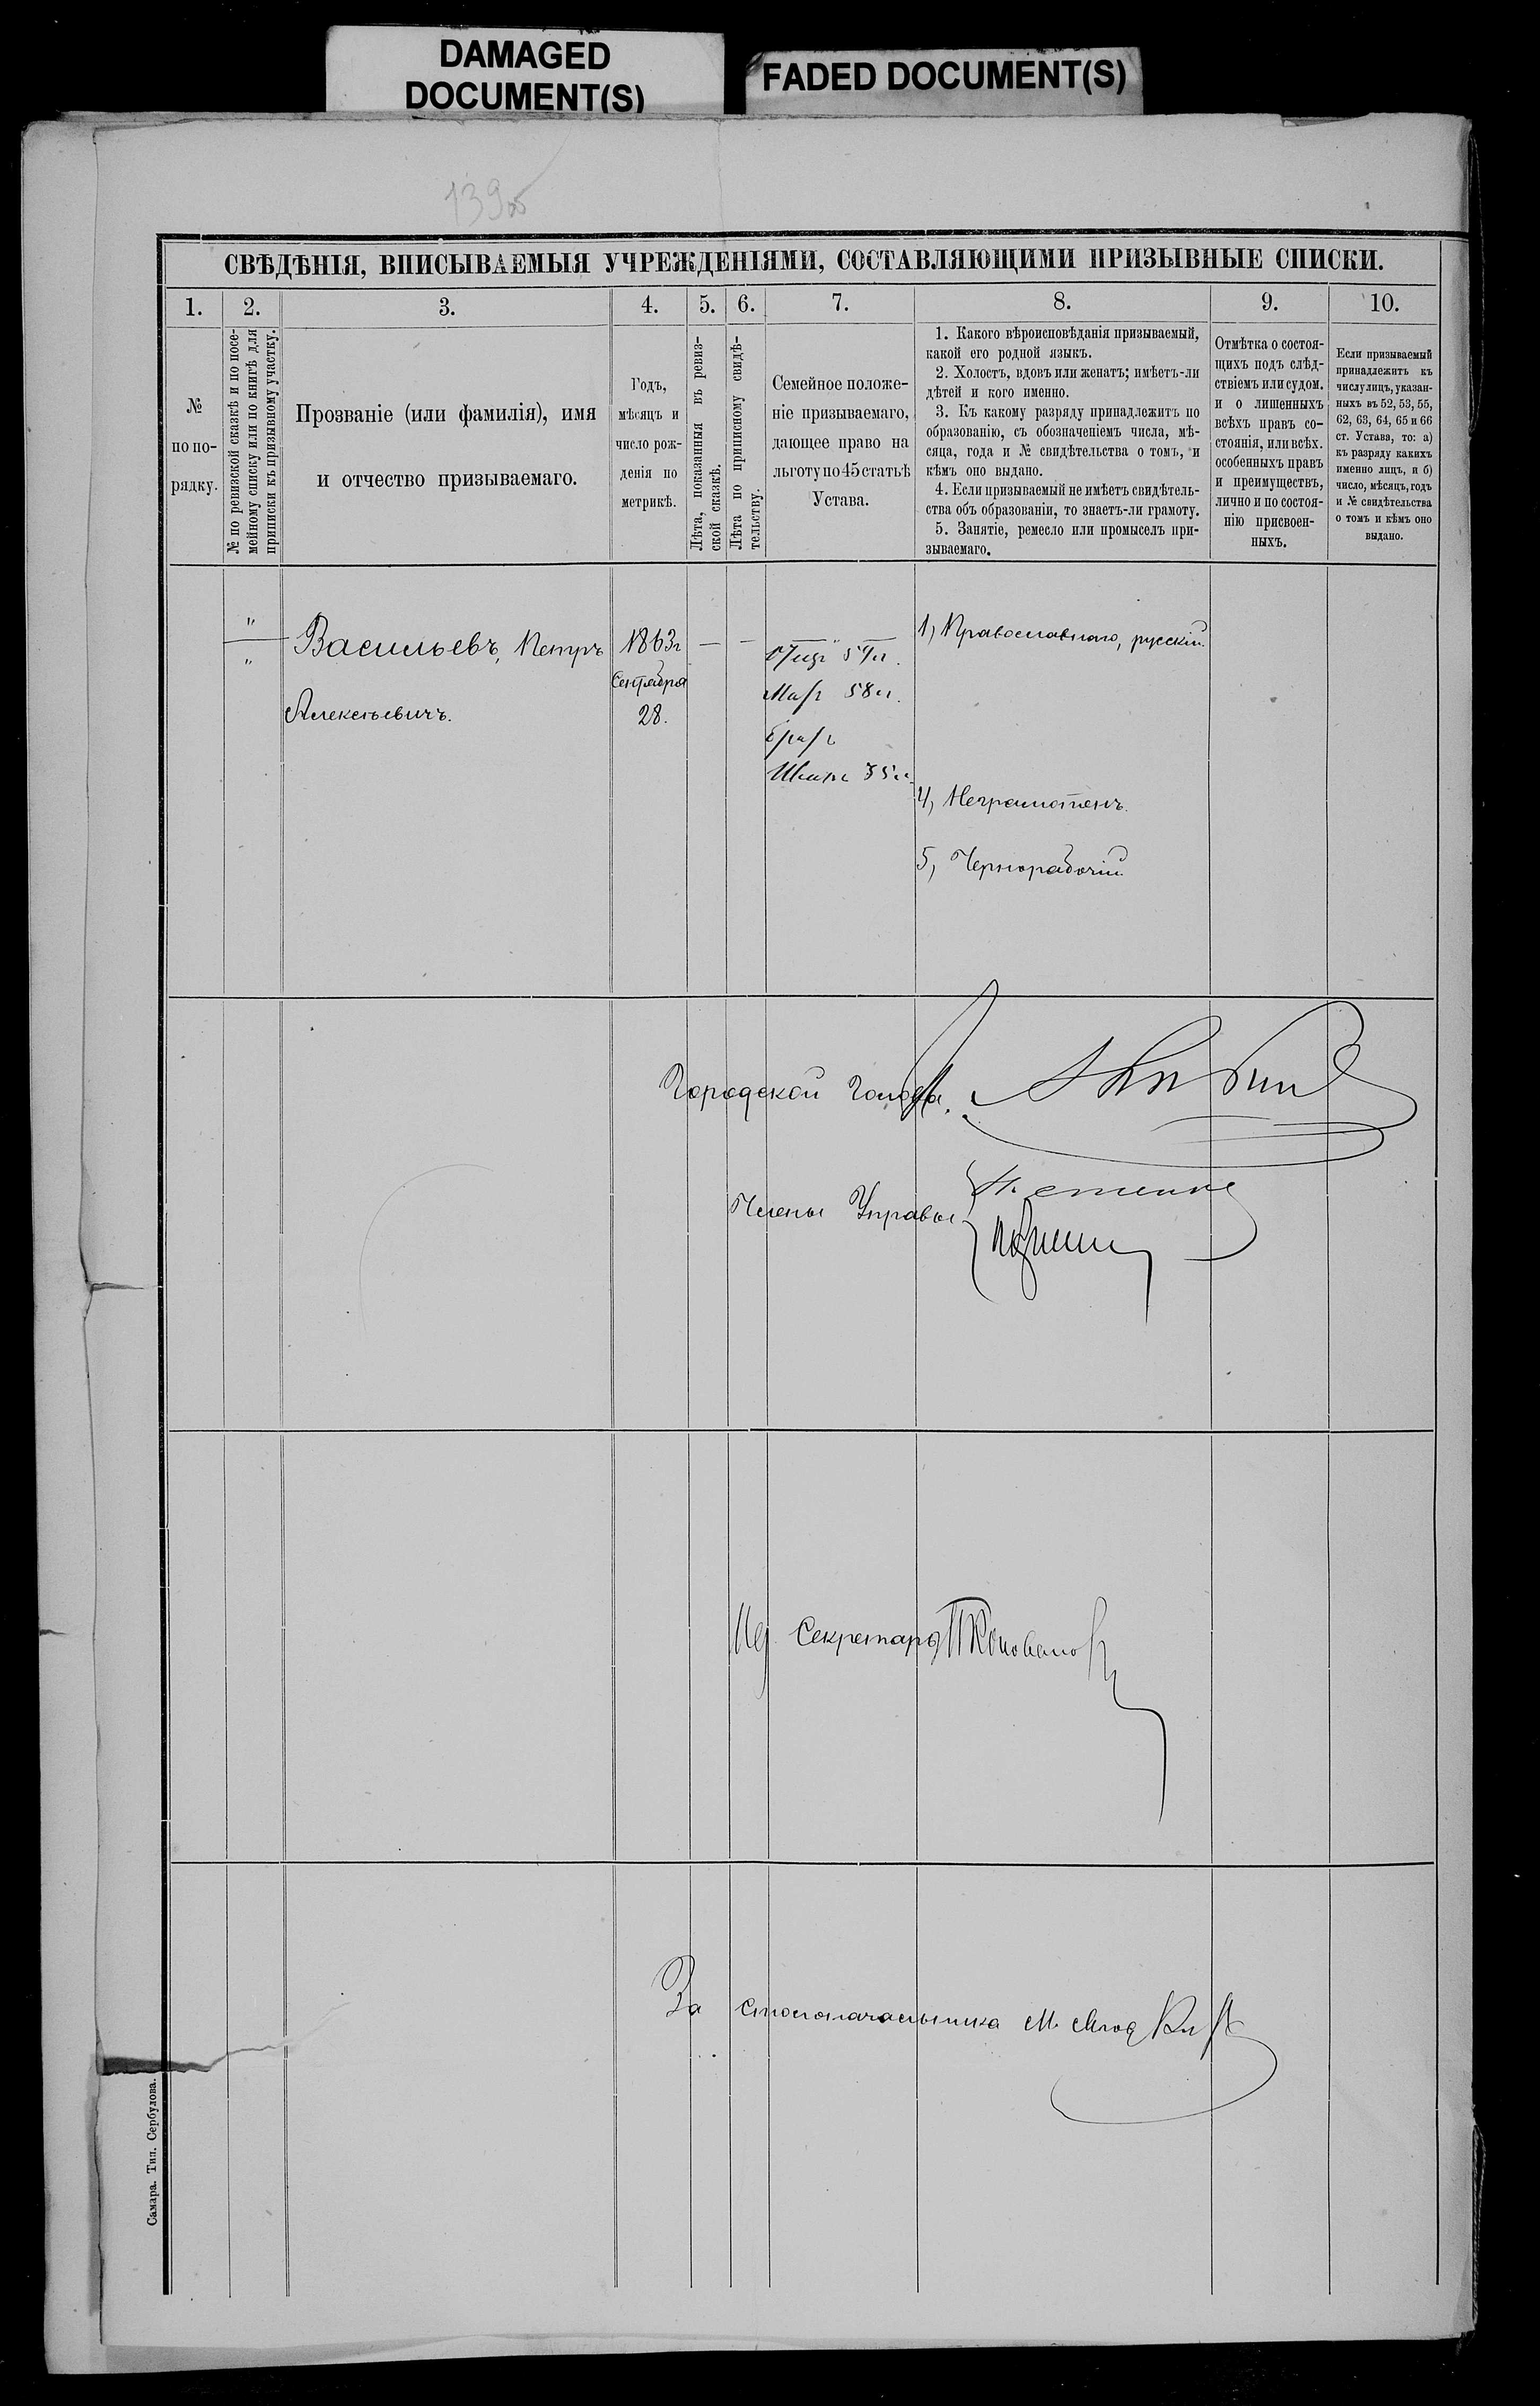 DAMAGED
DOCUMENT(S)
FADED DOCUMENT(S)
139об
СВѢДѢНІЯ, ВПИСЫВАЕМЫЯ УЧРЕЖДЕНІЯМИ, СОСТАВЛЯЮЩИМИ ПРИЗЫВНЫЕ СПИСКИ.
1. 2. 3. 4. 5. 6. 7. 8. 9. 10.
№
по по-
рядку.
№ по ревизской сказкѣ и по посе-
мейному списку или по книгѣ для
приписки къ призывному участку.
Прозваніе (или фамилія), имя
и отчество призываемаго.
Годъ,
мѣсяцъ и
число рож-
денія по
метрикѣ.
Лѣта, показанныя въ ревиз-
ской сказкѣ.
Лѣта по приписному свидѣ-
тельству.
Семейное положе-
ніе призываемаго,
дающее право на
льготу по 45 статьѣ
Устава.
1. Какого вѣроисповѣданія призываемый,
какой его родной языкъ.
2. Холостъ, вдовъ или женатъ; имѣетъ-ли
дѣтей и кого именно.
3. Къ какому разряду принадлежитъ по
образованію, съ обозначеніемъ числа, мѣ-
сяца, года и № свидѣтельства о томъ, и
кѣмъ оно выдано.
4. Если призываемый не имѣетъ свидѣтель-
ства объ образованіи, то знаетъ-ли грамоту.
5. Занятіе, ремесло или промыселъ при-
зываемаго.
Отмѣтка о состоя-
щихъ подъ слѣд-
ствіемъ или судом.
и о лишенныхъ
всѣхъ правъ со-
стоянія, или всѣх.
особенныхъ правъ
и преимуществъ,
лично и по состоя-
нію присвоен-
ныхъ.
Если призываемый
принадлежитъ къ
числу лицъ, указан-
ныхъ въ 52, 53, 55,
62, 63, 64, 65 и 66
ст. Устава, то: а)
къ разряду какихъ
именно лицъ, и б)
число, мѣсяцъ, годъ
и № свидѣтельства
о томъ и кѣмъ оно
выдано.
"
"
Васильевъ, Петръ
Алексѣевичъ.
1863г
Сентября
28.
—
—
Отцъ
Мать 58 л.
братъ
Иванъ 35 л.
1, Православнаго, русскій.
4, Неграмотенъ.
5, Чернорабочій.
Городской Голова
Члены Управы
Ид Секретаря П Коновалов
За столоначальника М.
Самара. Тип. Сербулова.